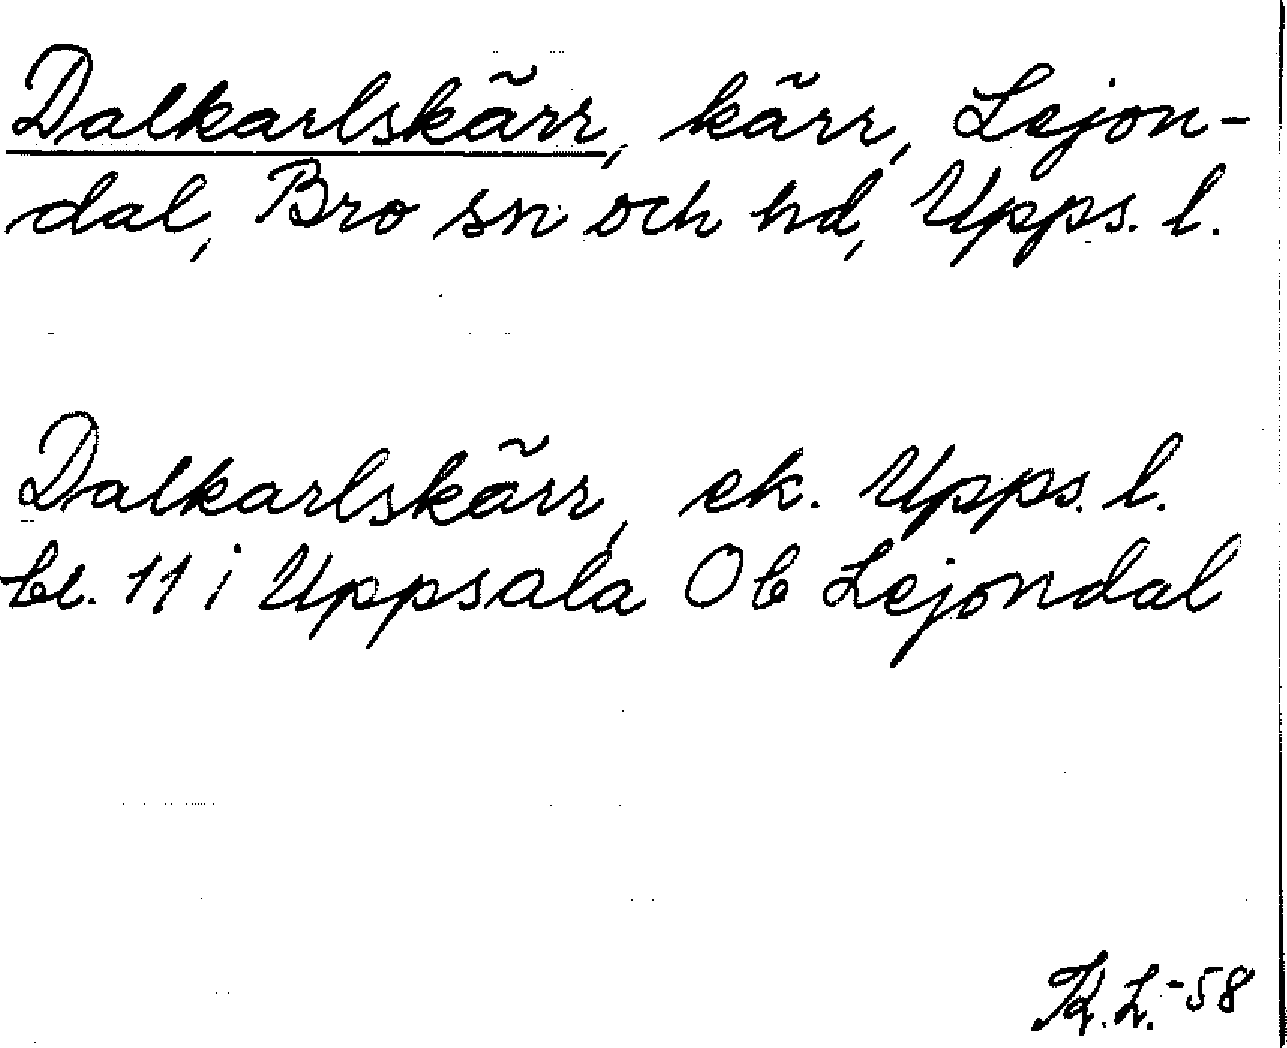 Dalkarlskärr, kärr, Lejon-
dal, Bro sn och hd, Upps. l.
Dalkarlskärr, ek. Upps. l.
bl. 11 i Uppsala Ob Lejondal
K.L.-58